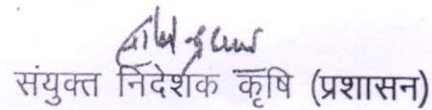 संयुक्त निदेशक कृषि (प्रशासन)